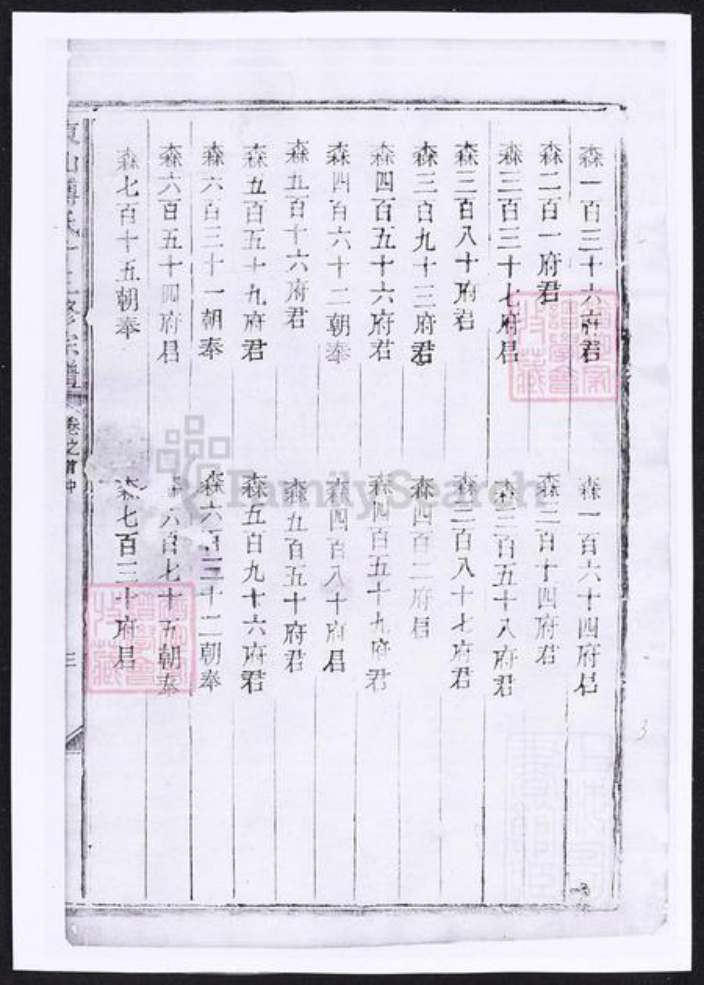 森一百三十六府君
森一百六十四府君
森二百一府君
森二百十四府君
森三百三十七府君
森三百五十八府君
森三百八十府君
森三百八十七府君
森三百九十三府君
森四百二府君
森四百五十六府君
森四百五十九府君
森四百六十二朝奉
森四百八十府君
森五百十六府君
森五百五十府君
森五百五十九府君
森五百九十六府君
森六百三十一朝奉
森六百三十二朝奉
森六百五十四府君
六百七十五朝奉
森七百十五朝奉
森七百二十府君
宗譜
卷之首中
三
FamilySearch
3